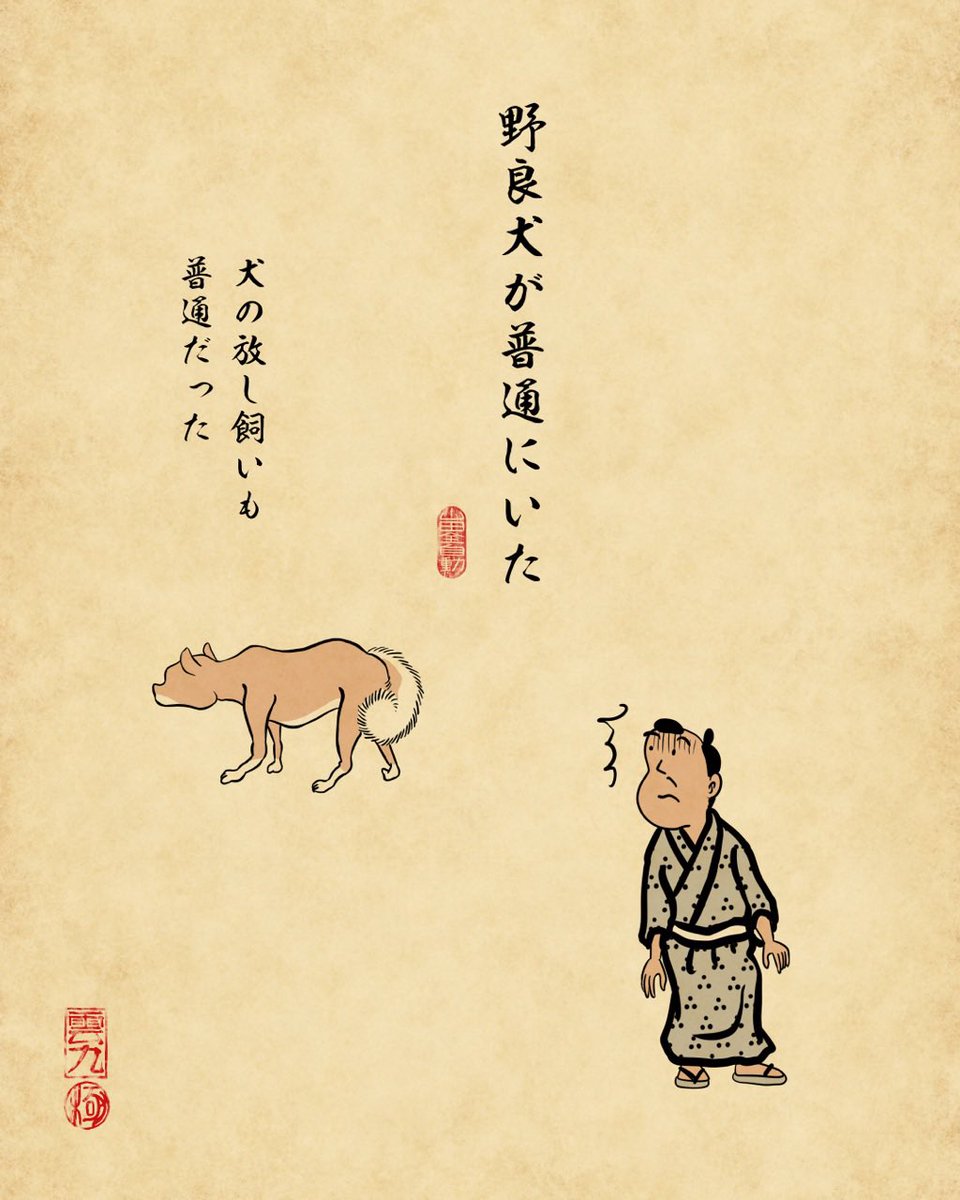 野良犬が普通にいた
犬の放し飼いも
普通だった